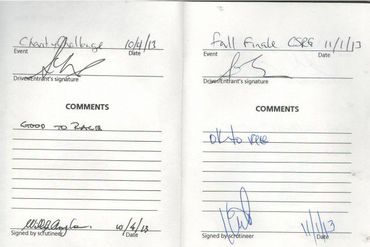 Charity Challenge 10/4/13
Event Date
Driver/Entrant's signature
COMMENTS
GOOD TO RACE
10/4/13
Signed by scrutineer Date
Fall Finale CSRG 11/1/13
Event Date
Driver/Entrant's signature
COMMENTS
OK to race
11/1/13
Signed by scrutineer Date